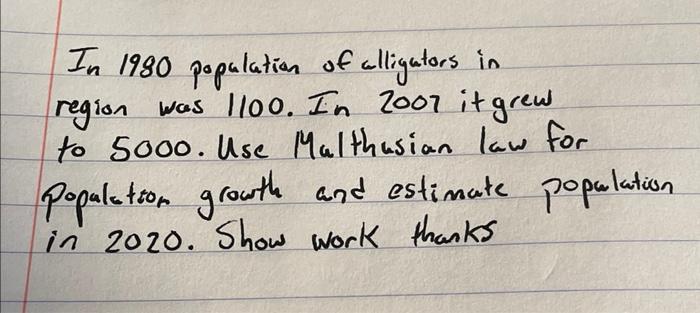 In 1980 population of alligators in
region was 1100. In 2007 it grew
to 5000. Use Malthusian law for
population growth and estimate population
in 2020. Show work thanks